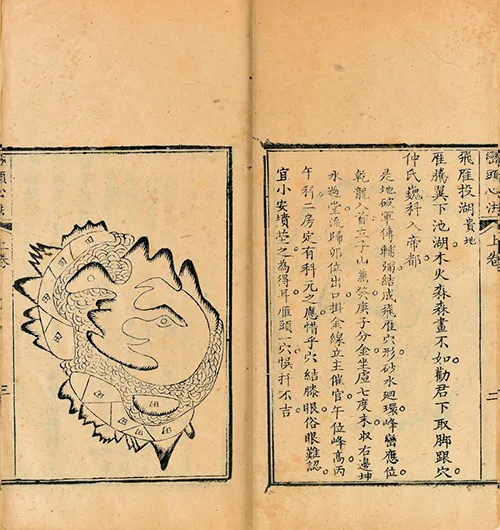 巒頭心法 上卷 二
飛雁投湖 貴地
雁騰翼下池湖木火森森畫不如勸君下取脚跟穴
仲氏魏科入帝都
是地破軍傳輔弼結成飛雁穴形砂水廻環峰巒應位
乾龍入首立子山兼癸庚子分金坐虛七度未収右邊坤
水過堂流歸卯位出口掛金線立主催官午位峰高丙
午科二房定有科元之應惜乎穴結膝眼俗眼難認
宜小安墳塋之為得耳雁頭一穴悞扦不吉
頭心法 上卷 三